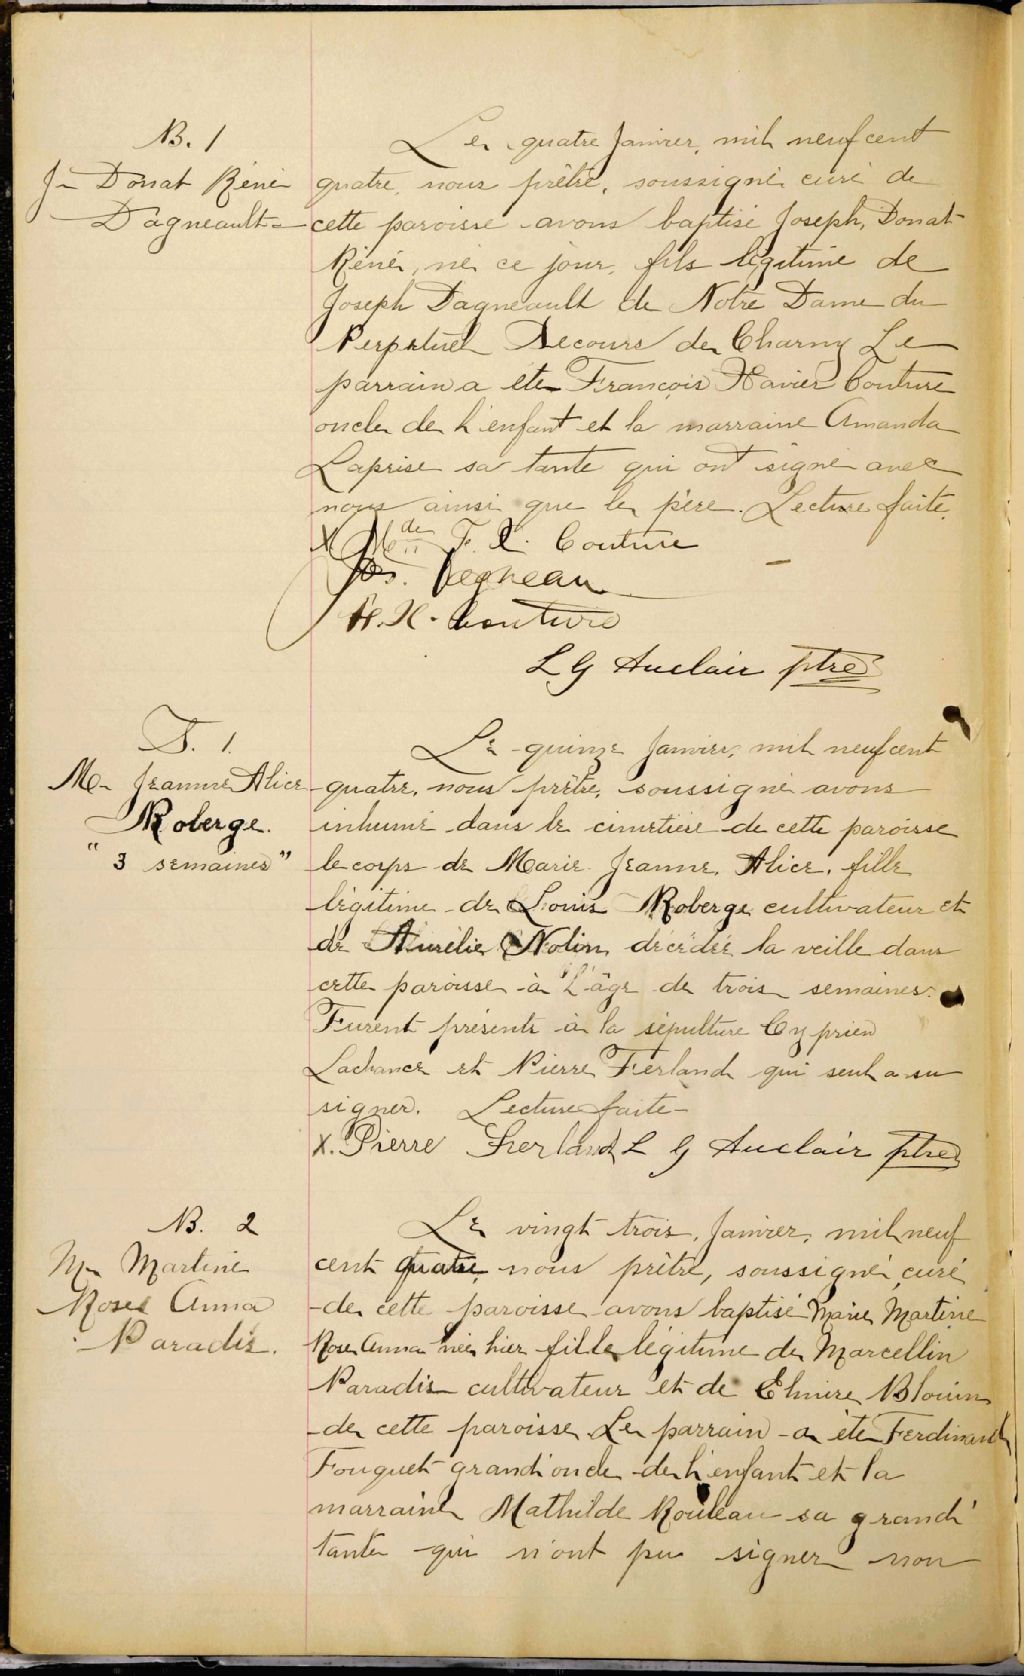 B. 1
J- Donat Réné
Dagneault-
Le quatre Janvier, mil neuf cent
quatre, nous prêtre, soussigné curé de
cette paroisse avons baptisé Joseph, Donat
Réné, né ce jour, fils légitime de
Joseph Dagneault de Notre Dame du
Perpetuel Secours de Charny Le
parrain a été François Xavier Couture
oncle de l'enfant et la marraine Amanda
Laprise sa tante qui ont signé avec
nous ainsi que le père. Lecture faite.
X Mde F. X. Couture
Jos. Dagneau
F. X. Couture
L G Auclair ptre
S. 1.
M- Jeanne Alice
Roberge.
"3 semaines"
Le quinze Janvier, mil neuf cent
quatre, nous prêtre, soussigné avons
inhumé dans le cimetière de cette paroisse
le corps de Marie Jeanne, Alice, fille
légitime de Louis Roberge cultivateur et
de Aurélie Nolin décédée la veille dans
cette paroisse à l'âge de trois semaines.
Furent présents à la sépulture Cyprien
Lachance et Pierre Ferland qui seul a su
signer. Lecture faite-
X. Pierre Ferland L G Auclair ptre
B. 2
M- Martine
Rose Anna
Paradis.
Le vingt trois, Janvier, mil neuf
cent quatre, nous prêtre, soussigné, curé
de cette paroisse avons baptisé Marie Martine
Rose Anna née hier fille légitime de Marcellin
Paradis cultivateur et de Elmire Blouin
de cette paroisse Le parrain a été Ferdinand
Fouguet grand'oncle de l'enfant et la
marraine Mathilde Rouleau sa grand'
tante qui n'ont pu signer non